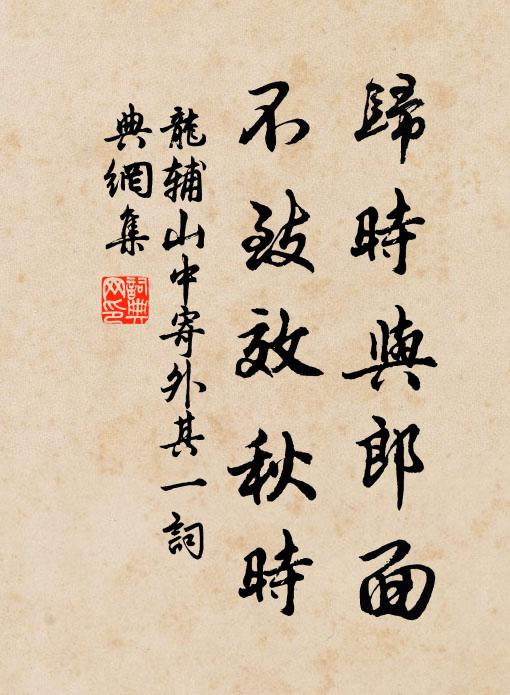 歸時與郎面
不致效秋時
龍輔山中寄外其一詞
典網集
詞典
网印